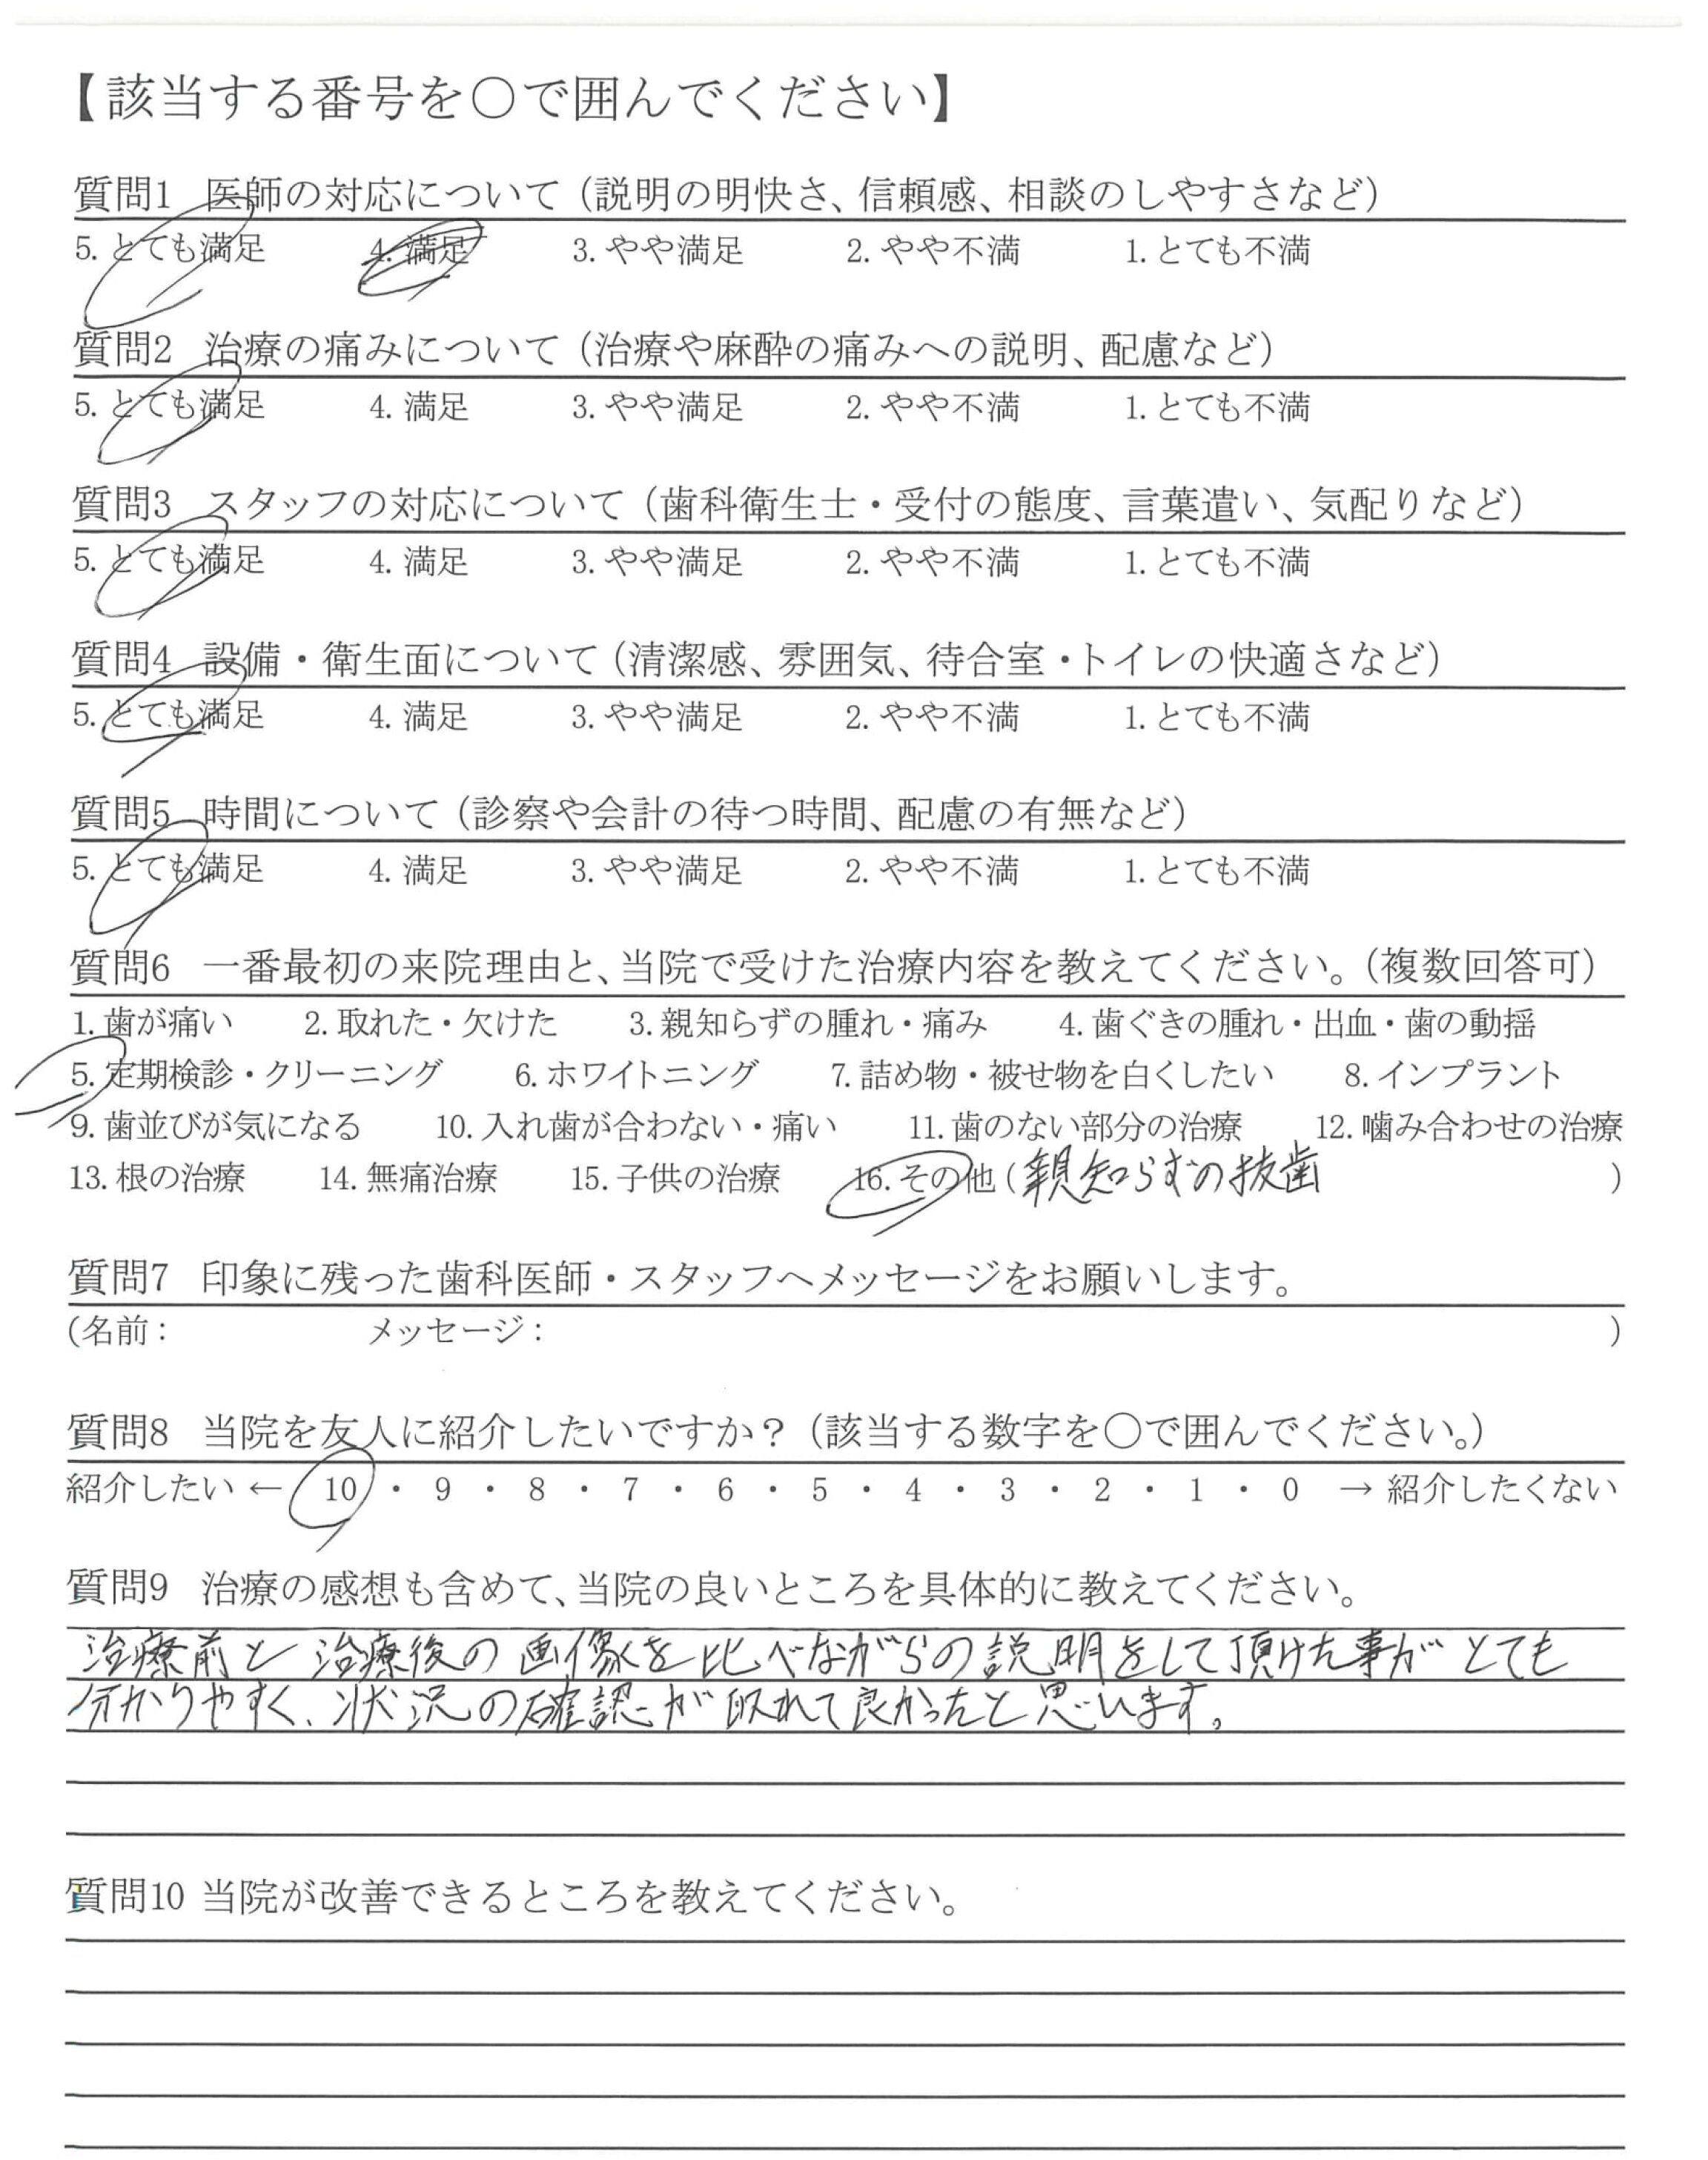 【該当する番号を〇で囲んでください】
質問1 医師の対応について（説明の明快さ、信頼感、相談のしやすさなど）
5. とても満足 4. 満足 3. やや満足 2. やや不満 1. とても不満
質問2 治療の痛みについて（治療や麻酔の痛みへの説明、配慮など）
5. とても満足 4. 満足 3. やや満足 2. やや不満 1. とても不満
質問3 スタッフの対応について（歯科衛生士・受付の態度、言葉遣い、気配りなど）
5. とても満足 4. 満足 3. やや満足 2. やや不満 1. とても不満
質問4 設備・衛生面について（清潔感、雰囲気、待合室・トイレの快適さなど）
5. とても満足 4. 満足 3. やや満足 2. やや不満 1. とても不満
質問5 時間について（診察や会計の待つ時間、配慮の有無など）
5. とても満足 4. 満足 3. やや満足 2. やや不満 1. とても不満
質問6 一番最初の来院理由と、当院で受けた治療内容を教えてください。（複数回答可）
1. 歯が痛い 2. 取れた・欠けた 3. 親知らずの腫れ・痛み 4. 歯ぐきの腫れ・出血・歯の動揺
5. 定期検診・クリーニング 6. ホワイトニング 7. 詰め物・被せ物を白くしたい 8. インプラント
9. 歯並びが気になる 10. 入れ歯が合わない・痛い 11. 歯のない部分の治療 12. 噛み合わせの治療
13. 根の治療 14. 無痛治療 15. 子供の治療 16. その他（親知らずの抜歯 ）
質問7 印象に残った歯科医師・スタッフへメッセージをお願いします。
（名前： メッセージ： ）
質問8 当院を友人に紹介したいですか？（該当する数字を〇で囲んでください。）
紹介したい ← 10 ・ 9 ・ 8 ・ 7 ・ 6 ・ 5 ・ 4 ・ 3 ・ 2 ・ 1 ・ 0 → 紹介したくない
質問9 治療の感想も含めて、当院の良いところを具体的に教えてください。
治療前と治療後の画像を比べながらの説明をして頂けた事がとても
分かりやすく、状況の確認が取れて良かったと思います。
質問10 当院が改善できるところを教えてください。